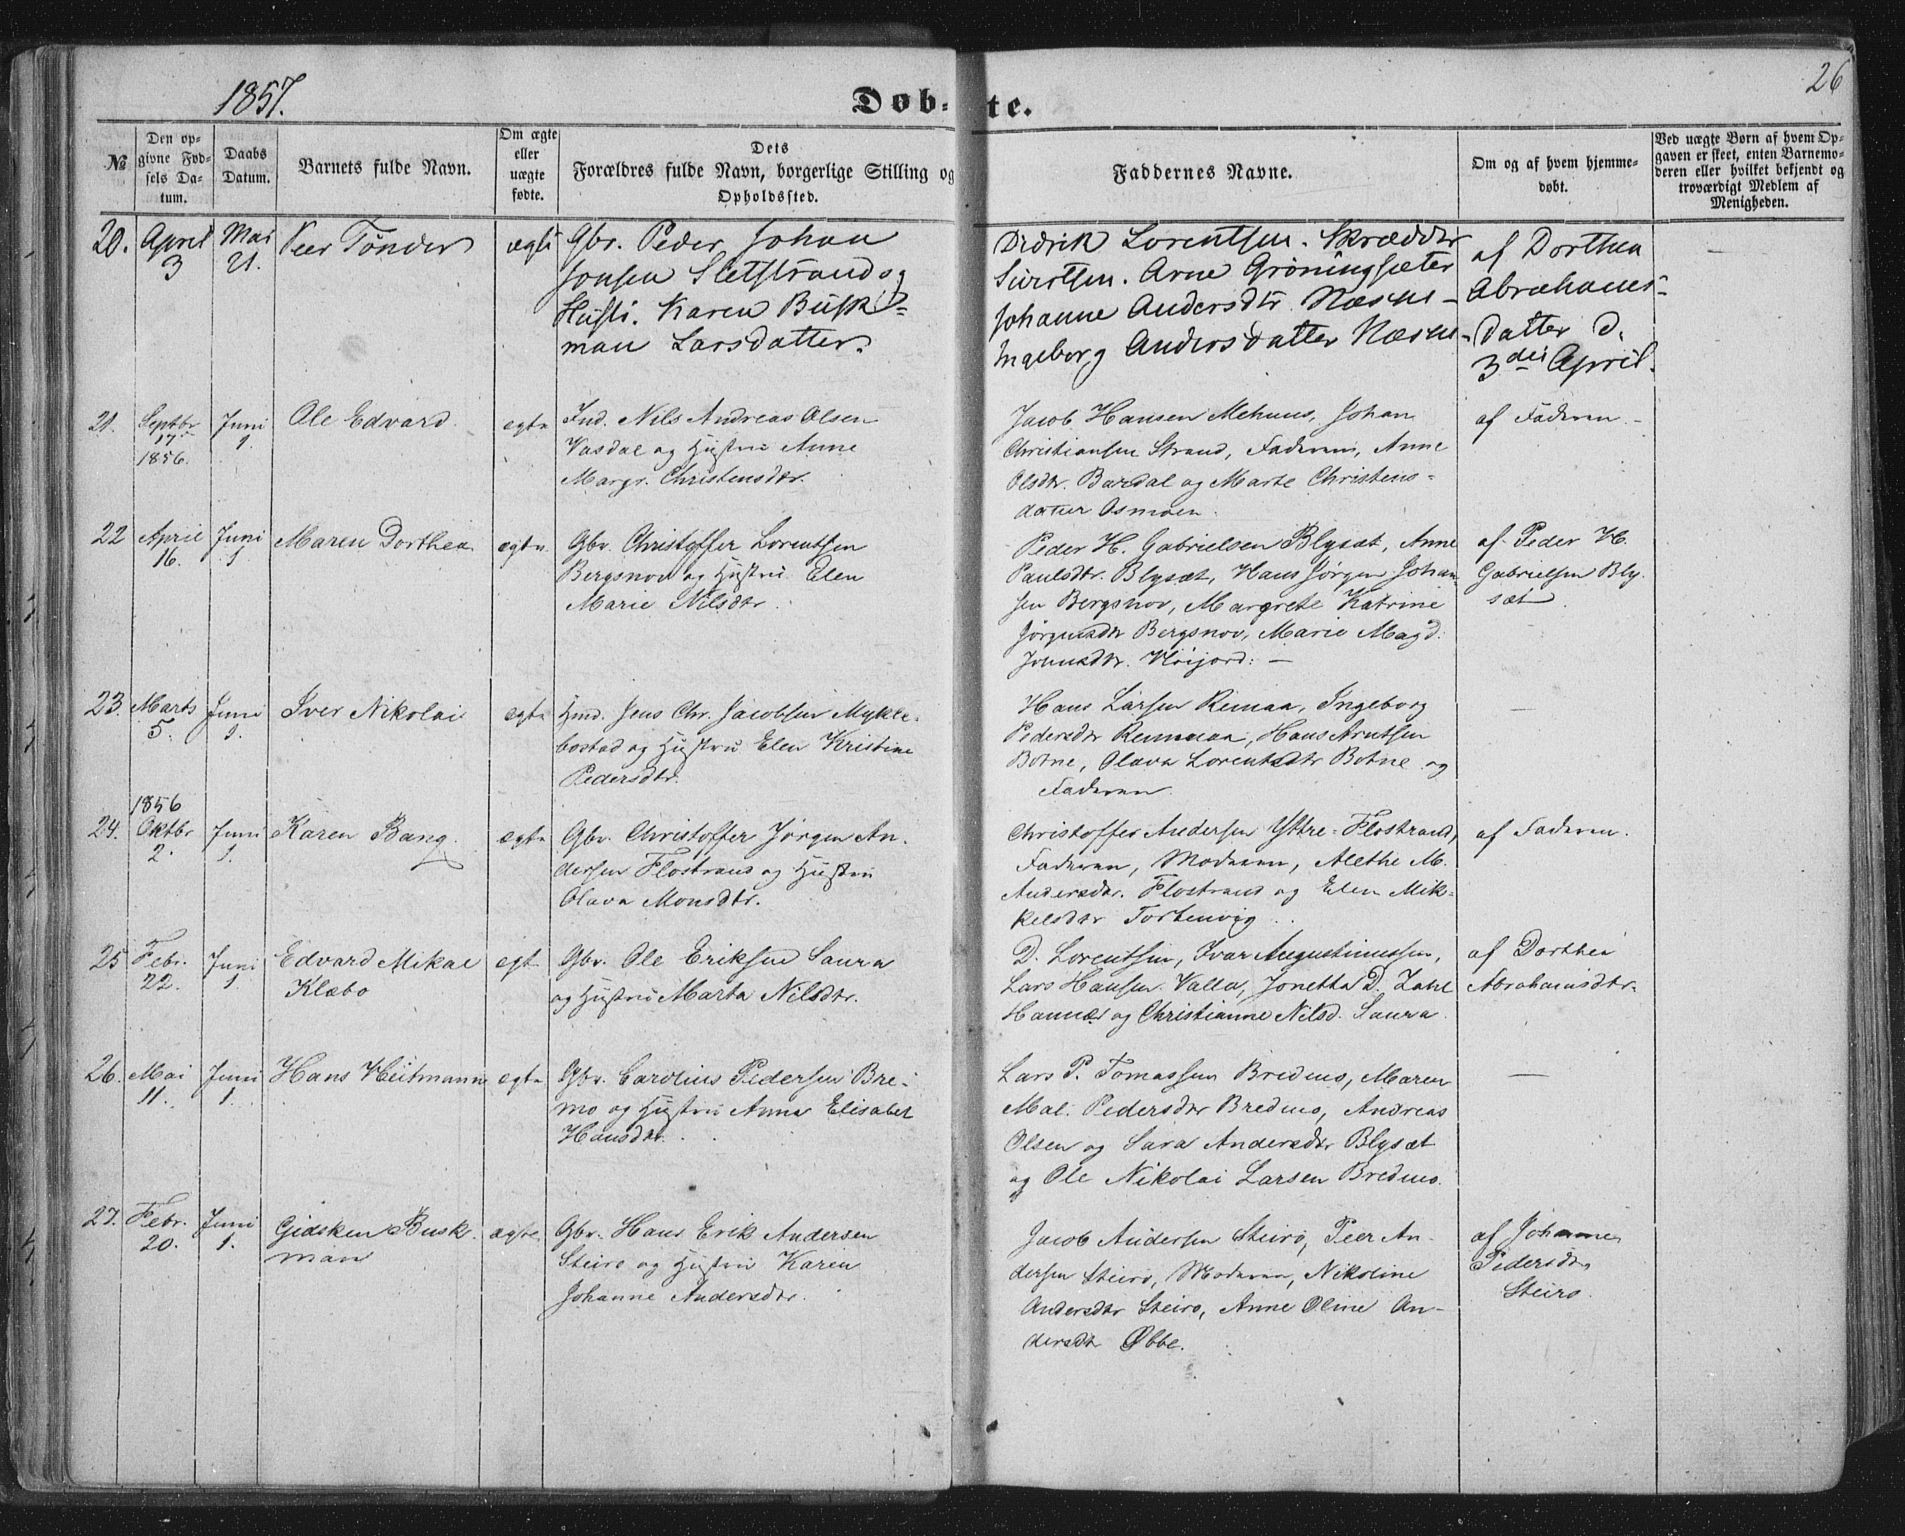 1857.
Døb-te.
26
№
Den op-
givne Fød-
sels Da-
tum.
Daabs
Datum.
Barnets fulde Navn.
Om ægte
eller
uægte
fødte.
Dets
Forældres fulde Navn, borgerlige Stilling og
Opholdssted.
Faddernes Navne.
Om og af hvem hjemme-
døbt.
Ved uægte Børn af hvem Op-
gaven er skeet, enten Barnemo-
deren eller hvilket bekjendt og
troværdigt Medlem af
Menigheden.
20.
April
3
Mai
21.
Peer Tønder
ægte
Gbr. Peder Johan
Jonsen Sletstrand og
Hustr. Karen Busk-
man Larsdatter.
Didrik Lorentsen. Skrædder
Sivertsen. Arne Grøningsæter
Johanne Andersdtr Næsne-
Ingeborg Andersdatter Næsne-
af Dorthea
Abrahams-
datter d.
3die April.
21.
Septbr
17
1856.
Juni
1.
Ole Edvard.
egte
Ind. Nils Andreas Olsen
Vasdal og Hustru Anne
Margr. Christensdtr.
Jacob Hansen Mehuus, Johan
Christiansen Strand, Faderen, Anne
Olsdtr. Bardal og Marte Christens-
datter Osmoen.
af Faderen -
22
April
16.
Juni
1
Maren Dorthea
egte.
Gbr. Christoffer Lorentsen
Bergsnov og Hustru Elen
Marie Nilsdtr.
Peder H. Gabrielsen Blysæt, Anne
Paulsdtr. Blysæt, Hans Jørgen Johan-
sen Bergsnov, Margrete Katrine
Jørgensdtr Bergsnov, Marie Magd.
Jonasdtr. Høijord. -
af Peder H.
Gabrielsen Bly-
sæt.
23.
Marts
5.
Juni
1.
Iver Nikolai
egte
Hmd. Jens Chr. Jacobsen Mykle-
bostad og Hustru Elen Kristine
Pedersdtr.
Hans Larsen Remaa, Ingeborg
Pedersdtr Remmaa, Hans Arntsen
Botne, Olava Lorentsdtr Botne og
Faderen
-
24.
1856
Oktbr
2.
Juni
1.
Karen Bang.
ægte
Gbr. Christoffer Jørgen An-
dersen Flostrand og Hustru
Olava Monsdtr.
Christoffer Andersen Yttre-Flostrand,
Faderen, Moderen, Alethe M.
Andersdtr. Flostrand og Elen Mik-
kelsdtr Tortenvig.
af Faderen.
25
Febr.
22.
Juni
1
Edvard Mikal
Klæbo
egt
Gbr. Ole Eriksen Saura
og Hustru Marta Nilsdtr.
D. Lorentsen, Ivar Augustinussen,
Lars Hansen Valla, Jonetta D. Zahl
Hannæs og Christianne Nilsd. Saura.
af Dorthea
Abrahamsdtr.
26.
Mai
11.
Juni
1.
Hans Heitmann
ægte
Gbr. Carolius Pedersen Bre-
mo og Hustru Anna Elisabet
Hansdtr.
Lars P. Tomassen Bredmo, Maren
Mal. Pedersdtr Bredmo, Andreas
Olsen og Sara Andersdtr Blysæt
og Ole Nikolai Larsen Bredmo.
-
27.
Febr.
20.
Juni
1.
Gidsken Busk-
man
ægte.
Gbr. Hans Erik Andersen
Steiro og Hustru Karen
Johanne Andersdtr.
Jacob Andersen Steiro, Peer An-
dersen Steiro, Moderen, Nikoline
Andersdtr Steiro, Anne Oline An-
dersdtr Øbbe.
af Johanne
Pedersdtr
Steiro.